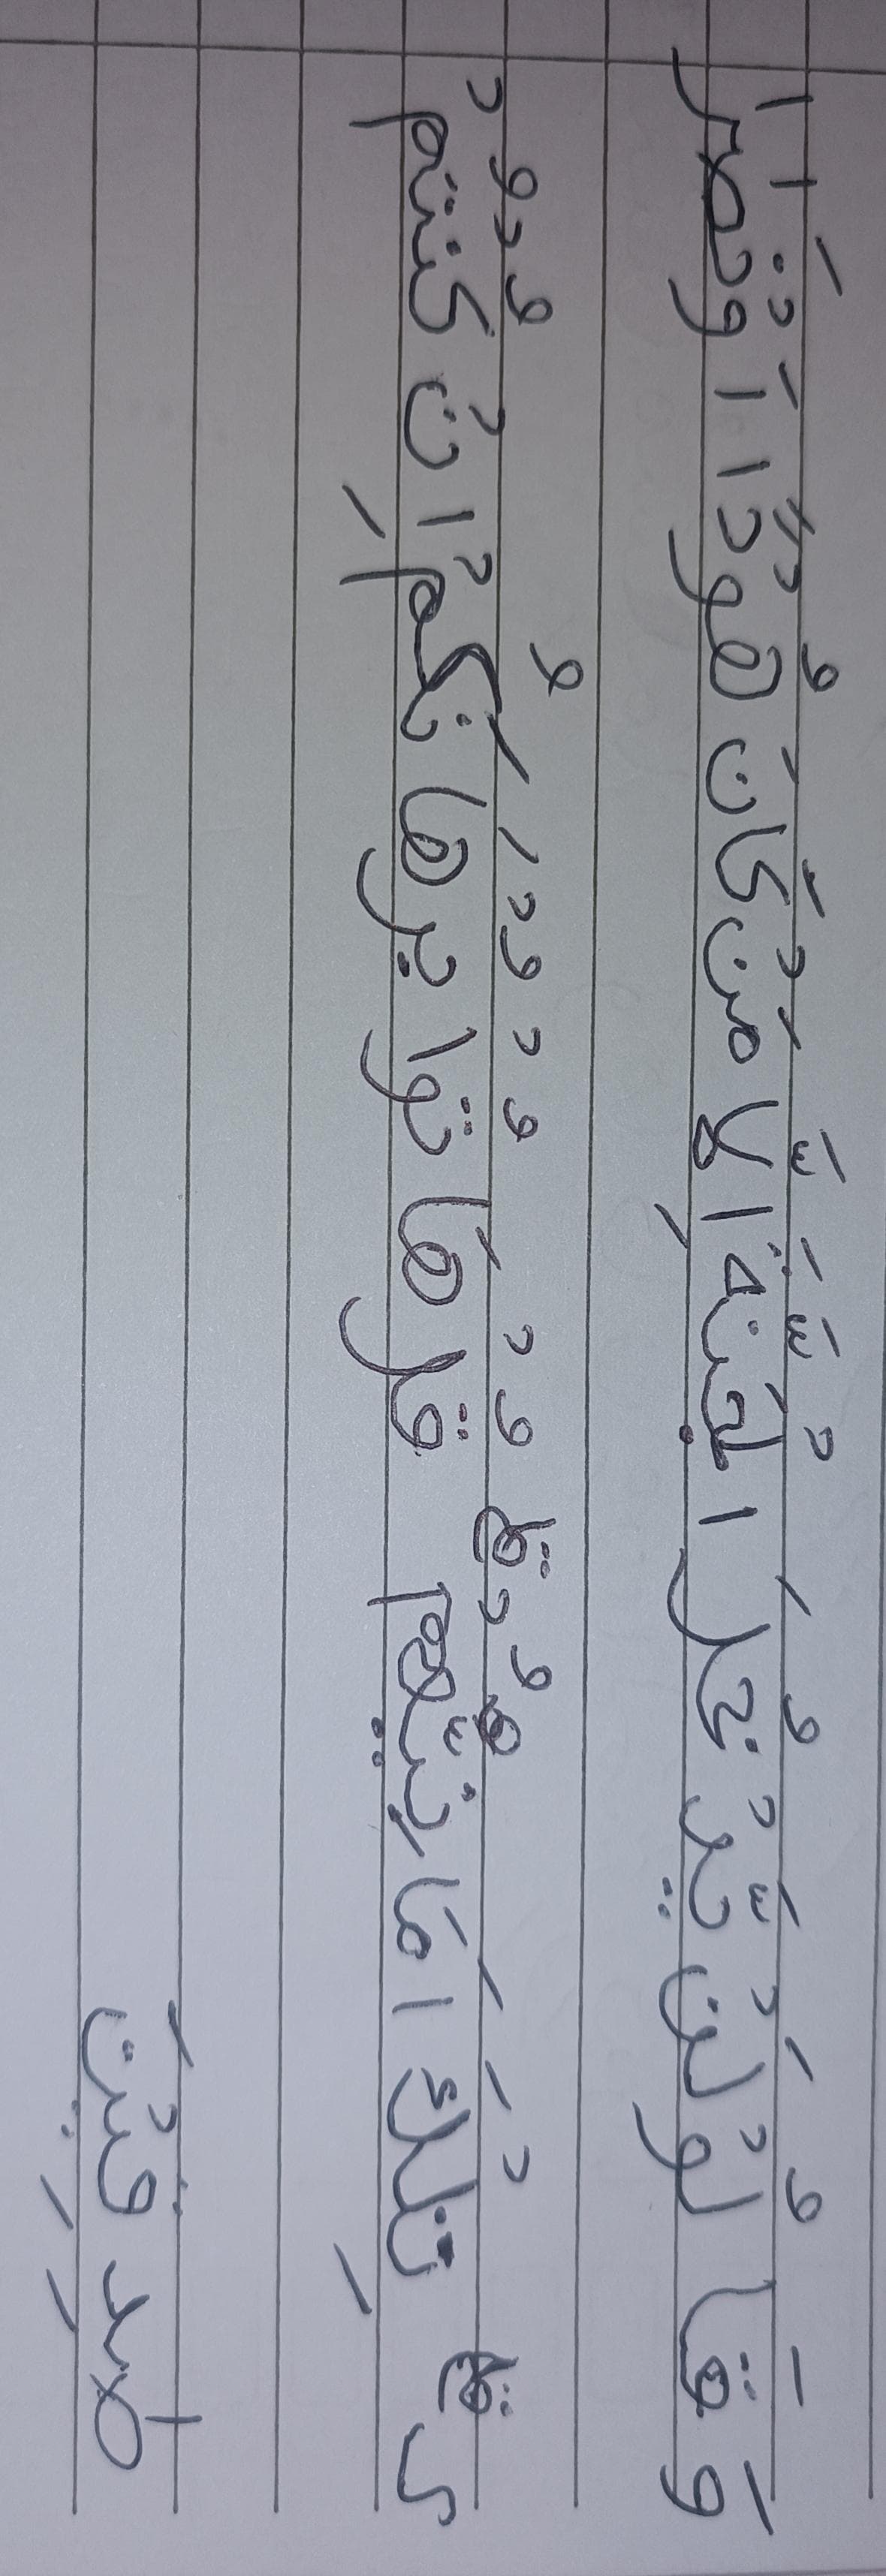 وَ قَا لُوْ لَنْ يَّدْ خُلَ ا لْجَنَّةَ اِلَّا مَنْ كَانَ هُوْدًا اَوْنَصٰرٰ
ى ؕ تِلْكَ اَمَا نِيُّهُمْ ؕ قُلْ هَا تُوْا بُرْهَا نَكُمْ اِنْ كُنْتُمْ
صٰدِ قِيْنَ